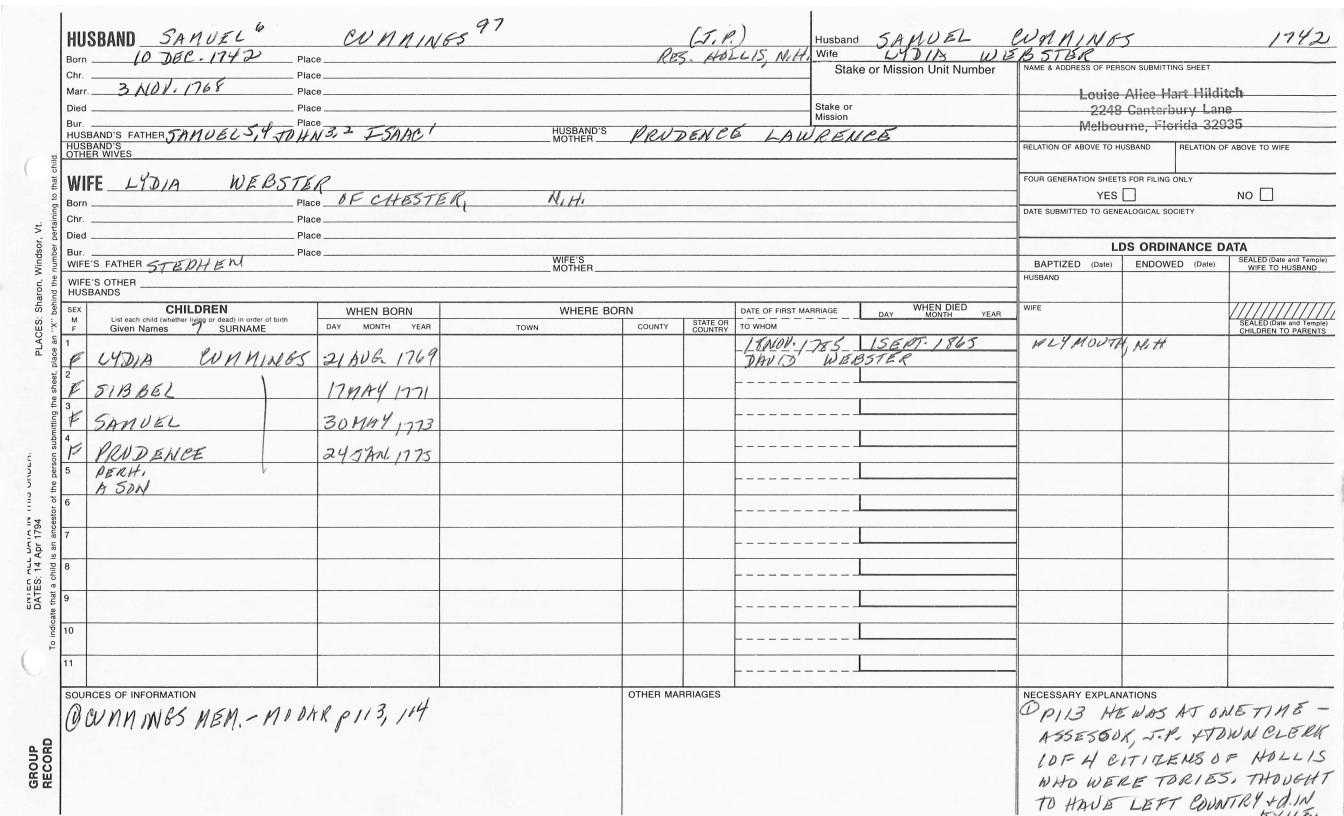 HUSBAND SAMUEL 6 CUMMINGS 97 (J.P.)
Born 10 DEC. 1742 Place RES. HOLLIS, N.H.
Chr. Place
Marr. 3 NOV. 1768 Place
Died Place
Bur. Place
HUSBAND'S FATHER SAMUEL 5,4 JOHN 3,2 ISAAC 1 HUSBAND'S MOTHER PRUDENCE LAWRENCE
HUSBAND'S OTHER WIVES
Husband SAMUEL CUMMINGS 1742
Wife LYDIA WEBSTER
Stake or Mission Unit Number
Stake or Mission
NAME & ADDRESS OF PERSON SUBMITTING SHEET
Louise Alice Hart Hilditch
2248 Canterbury Lane
Melbourne, Florida 32935
RELATION OF ABOVE TO HUSBAND RELATION OF ABOVE TO WIFE
FOUR GENERATION SHEETS FOR FILING ONLY
YES NO
DATE SUBMITTED TO GENEALOGICAL SOCIETY
WIFE LYDIA WEBSTER
Born Place OF CHESTER, N.H.
Chr. Place
Died Place
Bur. Place
WIFE'S FATHER STEPHEN WIFE'S MOTHER
WIFE'S OTHER HUSBANDS
LDS ORDINANCE DATA
BAPTIZED (Date) ENDOWED (Date) SEALED (Date and Temple) WIFE TO HUSBAND
HUSBAND
WIFE
SEALED (Date and Temple) CHILDREN TO PARENTS
SEX M F
CHILDREN
List each child (whether living or dead) in order of birth
Given Names SURNAME
WHEN BORN
DAY MONTH YEAR
WHERE BORN
TOWN COUNTY STATE OR COUNTRY
DATE OF FIRST MARRIAGE
TO WHOM
WHEN DIED
DAY MONTH YEAR
1 F LYDIA CUMMINGS 21 AUG. 1769 18 NOV. 1785 1 SEPT. 1865 PLYMOUTH, N.H
DAVID WEBSTER
2 F SIBBEL 17 MAY 1771
3 F SAMUEL 30 MAY 1773
4 F PRUDENCE 24 JAN. 1775
5 PERH.
A SON
6
7
8
9
10
11
SOURCES OF INFORMATION
① CUMMINGS MEM. - MODAR p 113, 114
OTHER MARRIAGES
NECESSARY EXPLANATIONS
① P113 HE WAS AT ONE TIME -
ASSESSOR, J.P. + TOWN CLERK
1 OF 4 CITIZENS OF HOLLIS
WHO WERE TORIES. THOUGHT
TO HAVE LEFT COUNTRY + d. IN
PLACES: Sharon, Windsor, Vt.
DATES: 14 Apr 1794
To indicate that a child is an ancestor of the person submitting the sheet, place an "X" behind the number pertaining to that child
GROUP
RECORD